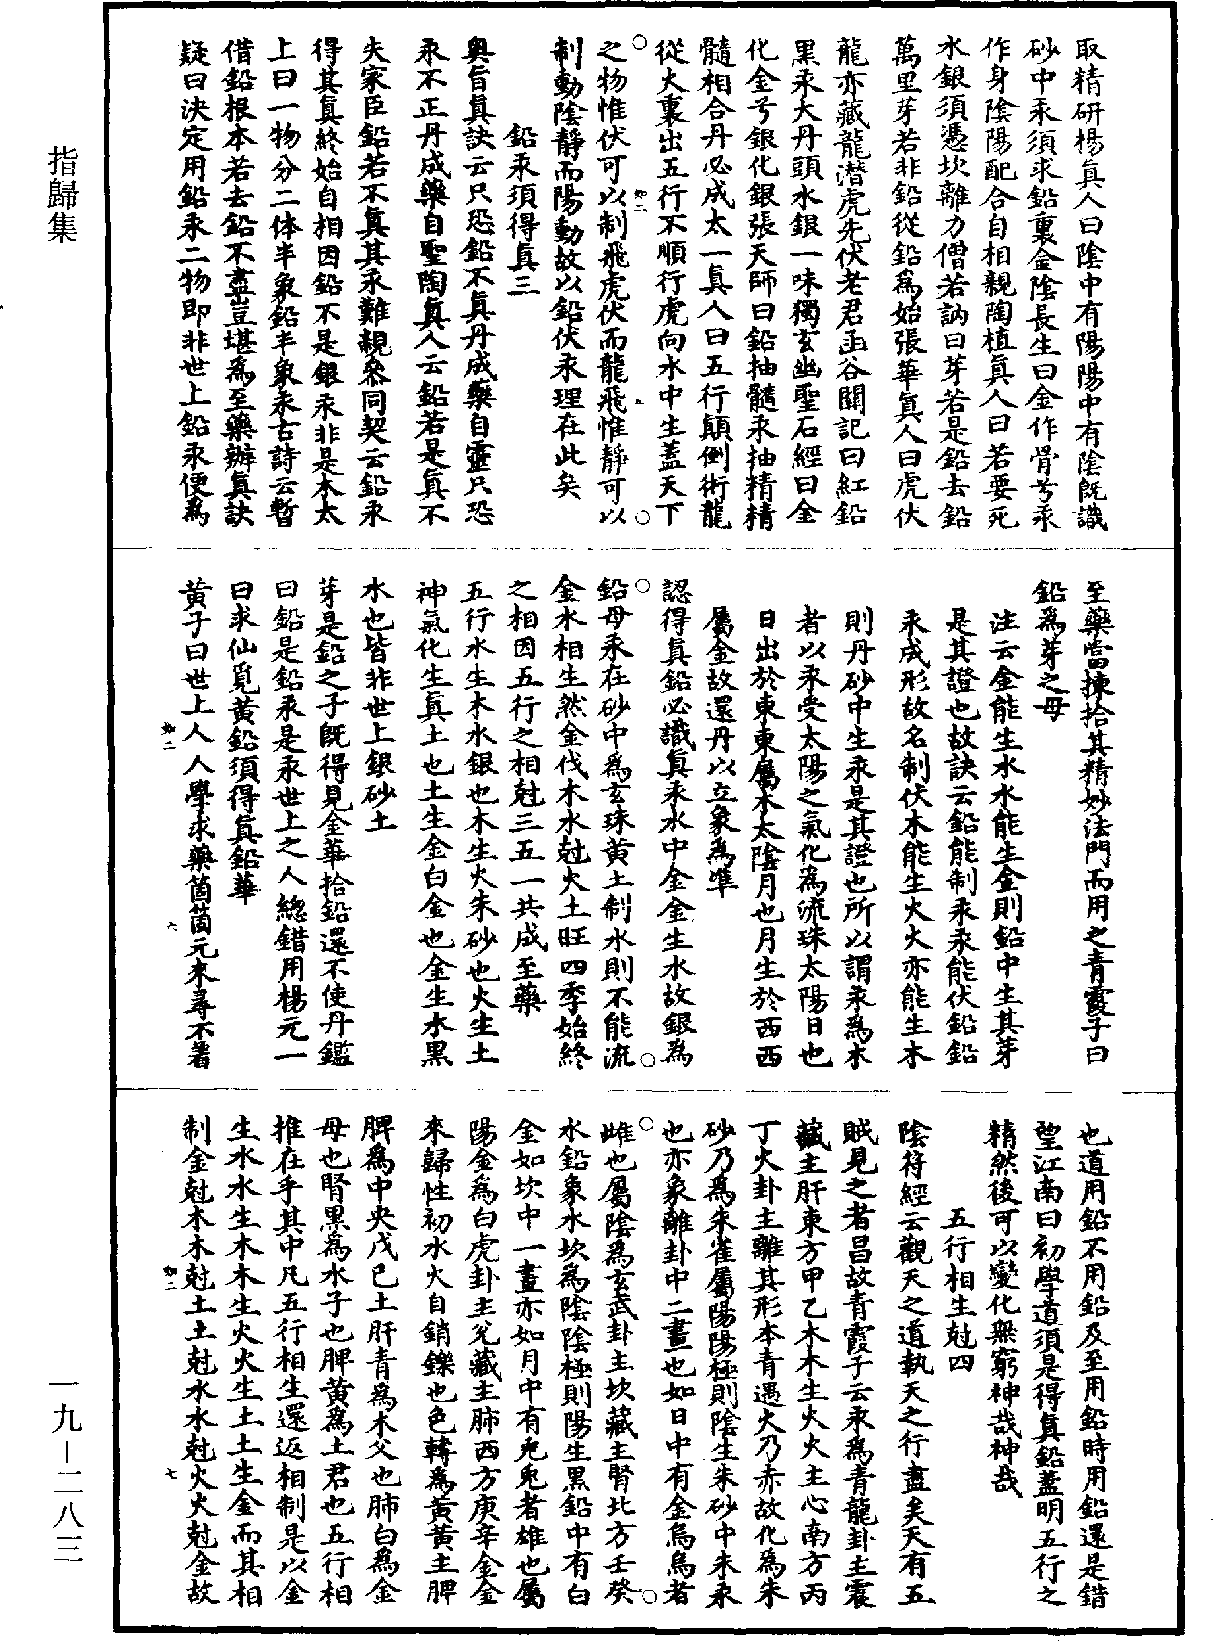 取精研楊真人曰陰中有陽陽中有陰既識
砂中汞須求鉛裏金陰長生曰金作骨兮汞
作身陰陽配合自相親陶植真人曰若要死
水銀須憑坎離力僧若訥曰芽若是鉛去鉛
萬里芽若非鉛從鉛爲始張華真人曰虎伏
龍亦藏龍潜虎先伏老君函谷關記曰紅鉛
黑汞大丹頭水銀一味獨玄幽聖石經曰金
化金兮銀化銀張天師曰鉛抽髓汞抽精精
髓相合丹必成太一真人曰五行顛倒術龍
從火裏出五行不順行虎向水中生蓋天下
之物惟伏可以制飛虎伏而龍飛惟靜可以
制動陰靜而陽動故以鉛伏汞理在此矣
鉛汞須得真三
奧旨真訣云只恐鉛不真丹成藥自靈只恐
汞不正丹成藥自聖陶真人云鉛若是真不
失家臣鉛若不真其汞難親叅同契云鉛汞
得其真終始自相因鉛不是銀汞非是本太
上曰一物分二体半象鉛半象汞古詩云暫
借鉛根本若去鉛不盡豈堪爲至藥辦真訣
疑曰決定用鉛汞二物即非世上鉛汞便爲
至藥當揀拾其精妙法門而用之青霞子曰
鉛爲芽之母
注云金能生水水能生金則鉛中生其芽
是其證也故訣云鉛能制汞汞能伏鉛鉛
汞成形故名制伏木能生火火亦能生木
則丹砂中生汞是其證也所以謂汞爲木
者以汞受太陽之氣化爲流珠太陽日也
日出於東東屬木太陰月也月生於西西
屬金故還丹以立象爲準
認得真鉛必識真汞水中金金生水故銀爲
鉛母汞在砂中爲玄珠黄土制水則不能流
金水相生然金伐木水尅火土旺四季始終
之相因五行之相尅三五一共成至藥
五行水生木水銀也木生火朱砂也火生土
神氣化生真土也土生金白金也金生水黑
水也皆非世上銀砂土
芽是鉛之子既得見金華拾鉛還不使丹鑑
曰鉛是鉛汞是汞世上之人總錯用楊元一
曰求仙覓黄鉛須得真鉛華
黄子曰世上人人學求藥箇箇元來尋不著
也道用鉛不用鉛及至用鉛時用鉛還是錯
望江南曰初學道須是得真鉛蓋明五行之
精然後可以變化無窮神哉神哉
五行相生尅四
陰符經云觀天之道執天之行盡矣天有五
賊見之者昌故青霞子云汞爲青龍卦主震
藏主肝東方甲乙木木生火火主心南方丙
丁火卦主離其形本青遇火乃赤故化爲朱
砂乃爲朱雀屬陽陽極則陰生朱砂中朱汞
也亦象離卦中二畫也如日中有金烏烏者
雌也屬陰爲玄武卦主坎藏主腎北方壬癸
水鉛象水坎爲陰陰極則陽生黑鉛中有白
金如坎中一畫亦如月中有兎兎者雄也屬
陽金爲白虎卦主兌藏主肺西方庚辛金金
來歸性初水火自銷鑠也色轉爲黄黄主脾
脾爲中央戊己土肝青爲木父也肺白爲金
母也腎黑爲水子也脾黄爲土君也五行相
推在乎其中凡五行相生還返相制是以金
生水水生木木生火火生土土生金而其相
制金尅木木尅土土尅水水尅火火尅金故
指歸集
一九—二八三